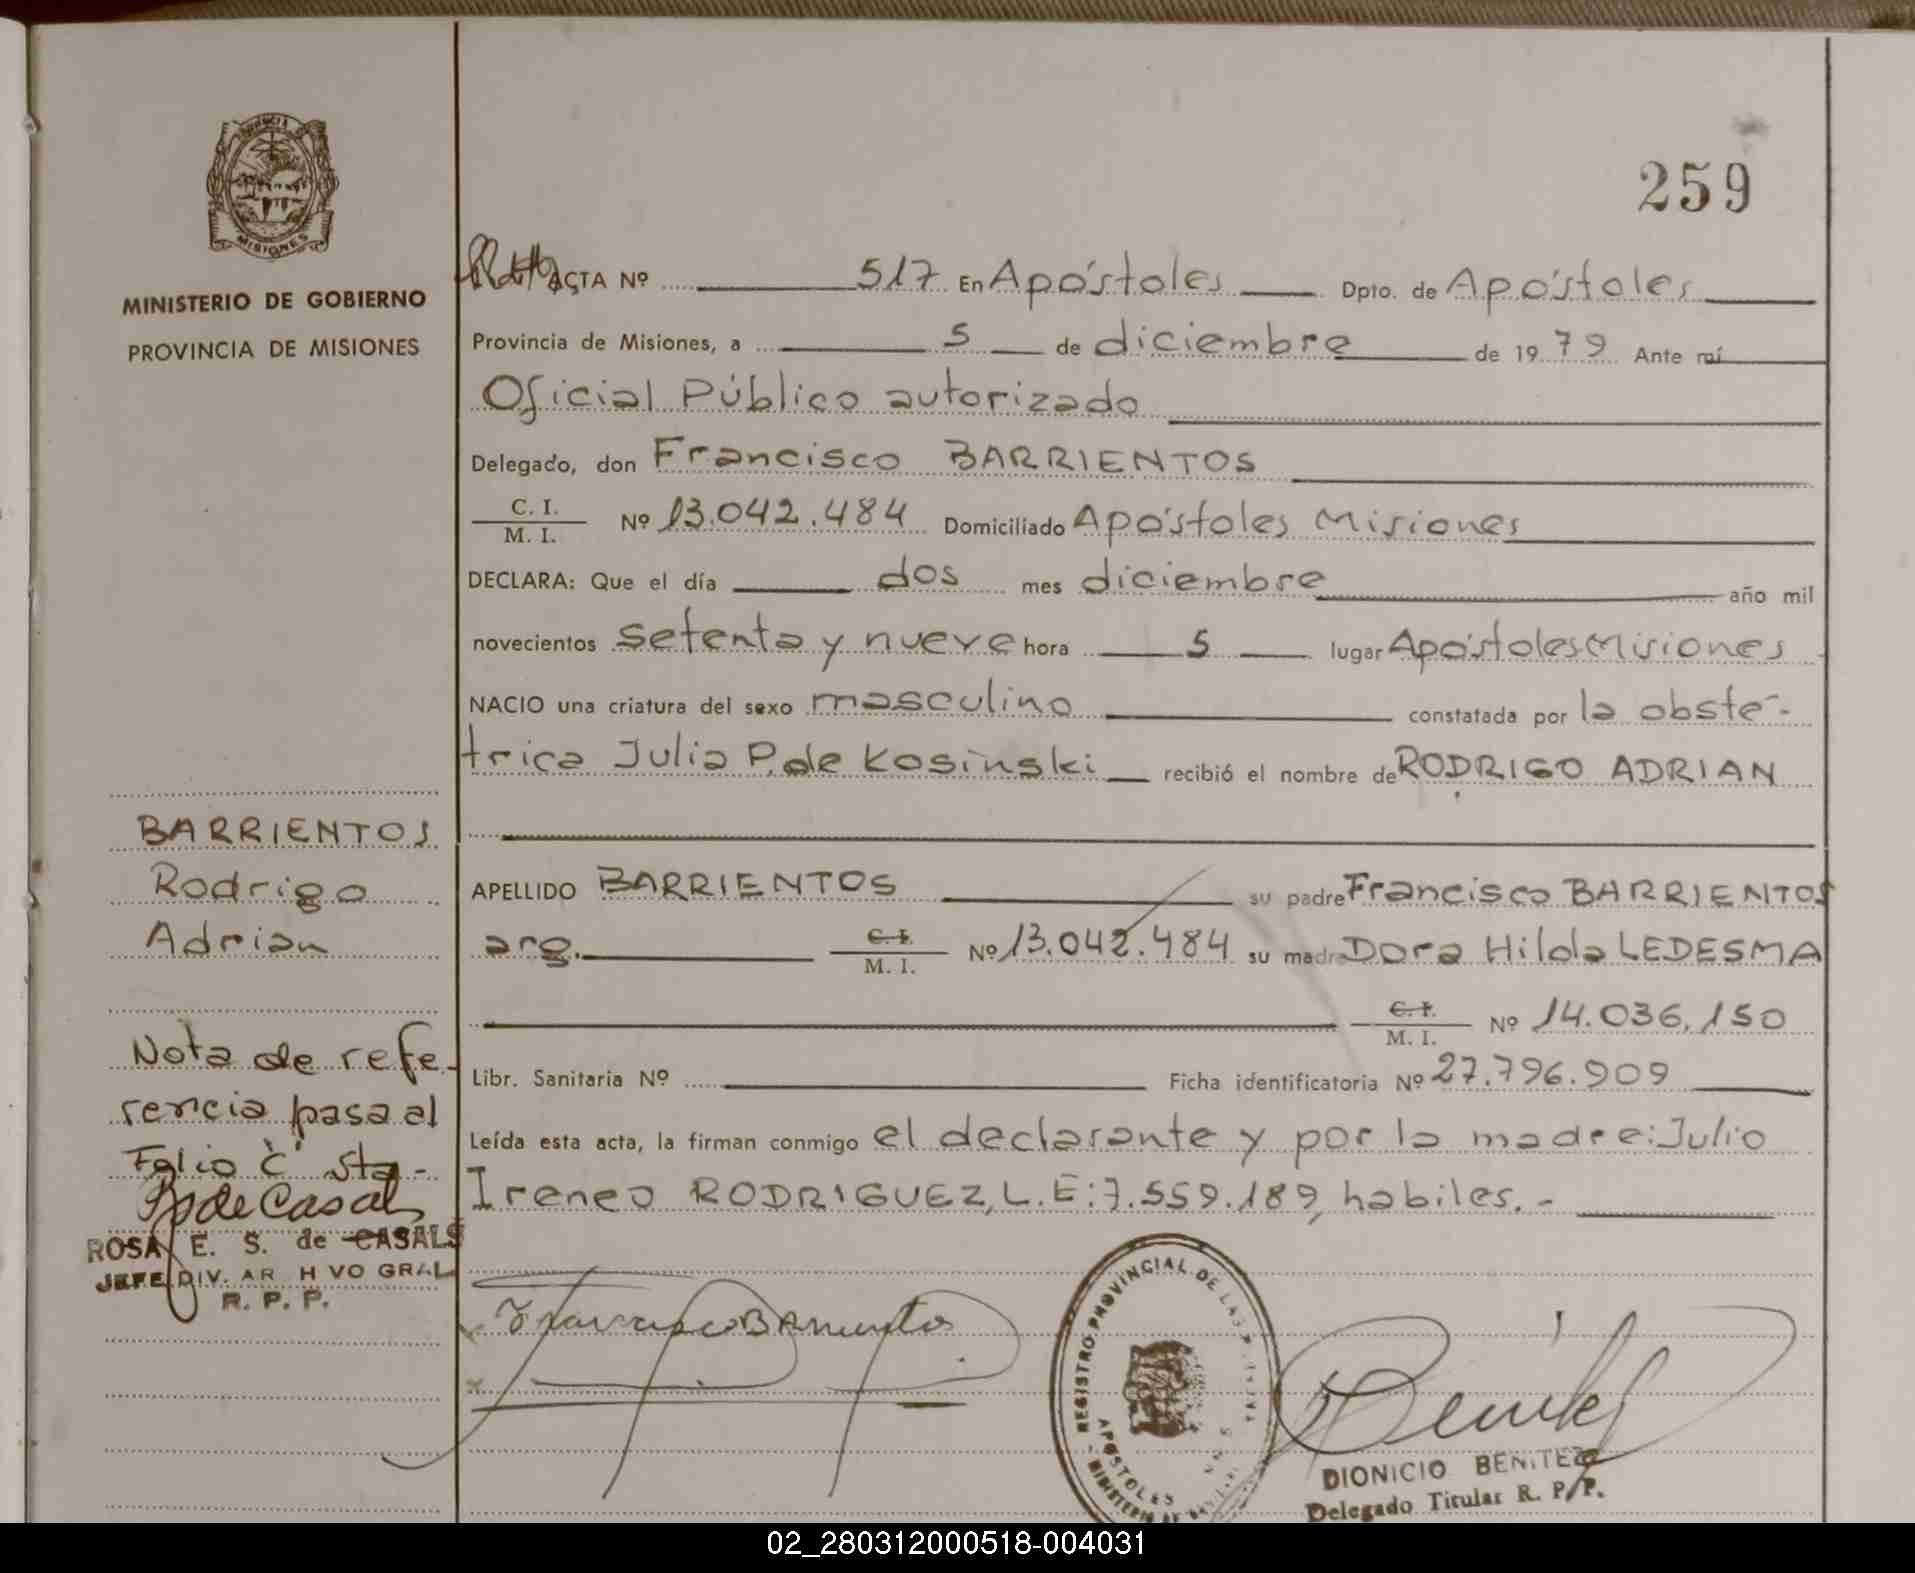 259
MISIONES
MINISTERIO DE GOBIERNO
PROVINCIA DE MISIONES
ACTA Nº 517 En Apóstoles Dpto. de Apóstoles
Provincia de Misiones, a 5 de diciembre de 1979 Ante mí
Oficial Público autorizado
Delegado, don Francisco BARRIENTOS
C. I.
M. I. Nº 13.042.484 Domiciliado Apóstoles Misiones
DECLARA: Que el día dos mes diciembre año mil
novecientos setenta y nueve hora 5 lugar Apóstoles Misiones
NACIO una criatura del sexo masculino constatada por la obste-
trica Julia P. de Kosinski recibió el nombre de RODRIGO ADRIAN
BARRIENTOS
Rodrigo
Adrian
APELLIDO BARRIENTOS su padre Francisco BARRIENTOS
arg. C. I.
M. I. Nº 13.042.484 su madre Dora Hilda LEDESMA
C. I.
M. I. Nº 14.036.150
Libr. Sanitaria Nº Ficha identificatoria Nº 27.796.909
Leída esta acta, la firman conmigo el declarante y por la madre: Julio
Ireneo RODRIGUEZ, L.E: 7.559.189, habiles.-
Nota de refe-
rencia pasa al
Folio "C" sta-
de Casals
ROSA E. S. de CASALS
JEFE DIV. AR H VO GRAL
R. P. P.
Francisco Barrientos
REGISTRO PROVINCIAL DE LAS
APOSTOLES
Benitez
DIONICIO BENITEZ
Delegado Titular R. P. P.
02_280312000518-004031